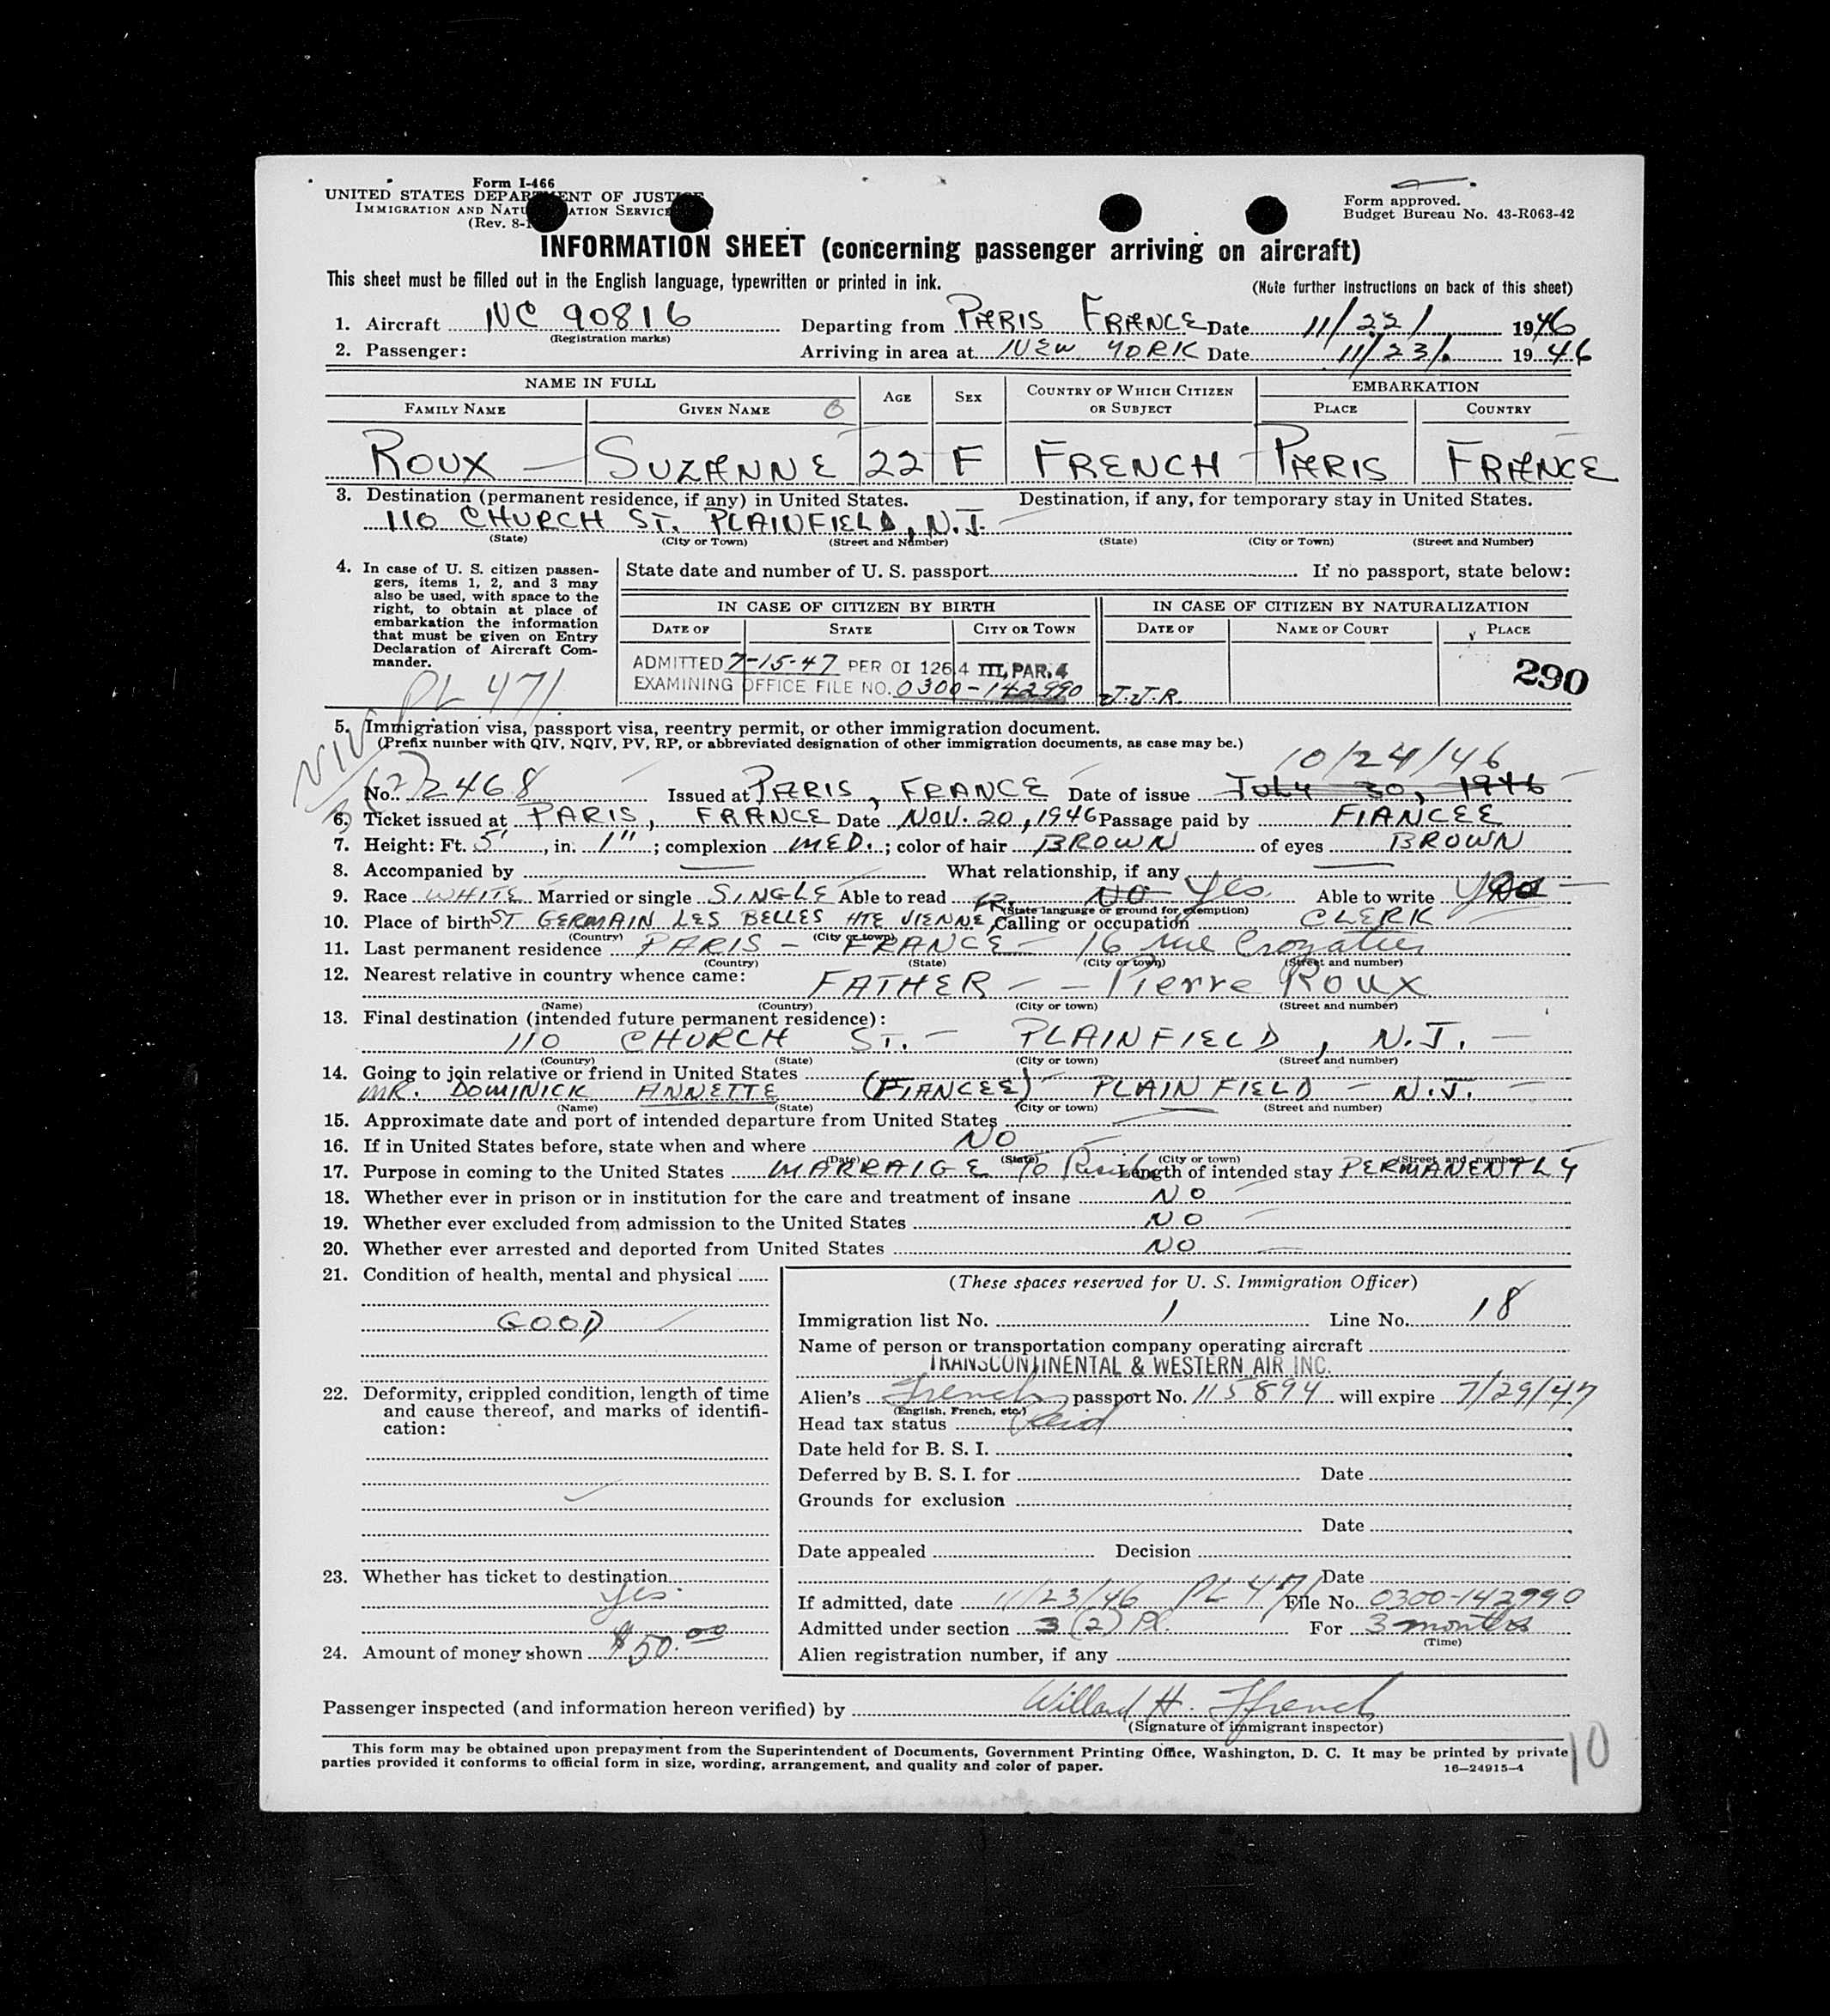 Form I-466
UNITED STATES DEPARTMENT OF JUSTICE
IMMIGRATION AND NATURALIZATION SERVICE
(Rev. 8-1
Form approved.
Budget Bureau No. 43-R063-42
INFORMATION SHEET (concerning passenger arriving on aircraft)
This sheet must be filled out in the English language, typewritten or printed in ink.
(Note further instructions on back of this sheet)
1. Aircraft NC 90816 Departing from PARIS FRANCE Date 11/22/ 1946
(Registration marks)
2. Passenger: Arriving in area at NEW YORK Date 11/23/ 1946
NAME IN FULL AGE SEX COUNTRY OF WHICH CITIZEN OR SUBJECT EMBARKATION
FAMILY NAME GIVEN NAME PLACE COUNTRY
ROUX SUZANNE 22 F FRENCH PARIS FRANCE
3. Destination (permanent residence, if any) in United States. Destination, if any, for temporary stay in United States.
110 CHURCH ST. PLAINFIELD, N.J.
(State) (City or Town) (Street and Number) (State) (City or Town) (Street and Number)
4. In case of U. S. citizen passen-
gers, items 1, 2, and 3 may
also be used, with space to the
right, to obtain at place of
embarkation the information
that must be given on Entry
Declaration of Aircraft Com-
mander.
State date and number of U. S. passport If no passport, state below:
IN CASE OF CITIZEN BY BIRTH IN CASE OF CITIZEN BY NATURALIZATION
DATE OF STATE CITY OR TOWN DATE OF NAME OF COURT PLACE
ADMITTED 7-15-47 PER OI 126.4 III, PAR. 4
EXAMINING OFFICE FILE NO. 0300-142990 J.J.R.
290
PL 471
NIV
5. Immigration visa, passport visa, reentry permit, or other immigration document.
(Prefix number with QIV, NQIV, PV, RP, or abbreviated designation of other immigration documents, as case may be.)
10/24/46
No. 2468 Issued at PARIS, FRANCE Date of issue JULY 30, 1946
6. Ticket issued at PARIS, FRANCE Date NOV. 20, 1946 Passage paid by FIANCEE
7. Height: Ft. 5', in. 1"; complexion MED.; color of hair BROWN of eyes BROWN
8. Accompanied by What relationship, if any
9. Race WHITE Married or single SINGLE Able to read FR. NO Yes. Able to write Yes
(State language or ground for exemption)
10. Place of birth ST GERMAIN LES BELLES HTE VIENNE Calling or occupation CLERK
(Country) (City or town)
11. Last permanent residence PARIS - FRANCE - 16 rue Crozatier
(Country) (State) (City or town) (Street and number)
12. Nearest relative in country whence came: FATHER - - Pierre Roux
(Name) (Country) (City or town) (Street and number)
13. Final destination (intended future permanent residence):
110 CHURCH ST. - PLAINFIELD, N.J. -
(Country) (State) (City or town) (Street and number)
14. Going to join relative or friend in United States
MR. DOMINICK ANNETTE (FIANCEE) - PLAINFIELD - N.J. -
(Name) (State) (City or town) (Street and number)
15. Approximate date and port of intended departure from United States
16. If in United States before, state when and where NO
(Date) (State) (City or town) (Street and number)
17. Purpose in coming to the United States MARRAIGE To Reside Length of intended stay PERMANENTLY
18. Whether ever in prison or in institution for the care and treatment of insane NO
19. Whether ever excluded from admission to the United States NO
20. Whether ever arrested and deported from United States NO
21. Condition of health, mental and physical
GOOD
22. Deformity, crippled condition, length of time
and cause thereof, and marks of identifi-
cation:
23. Whether has ticket to destination
Yes.
24. Amount of money shown $50.00
(These spaces reserved for U. S. Immigration Officer)
Immigration list No. 1 Line No. 18
Name of person or transportation company operating aircraft
TRANSCONTINENTAL & WESTERN AIR INC.
Alien's French passport No. 115894 will expire 7/29/47
(English, French, etc.)
Head tax status Paid
Date held for B. S. I.
Deferred by B. S. I. for Date
Grounds for exclusion
Date
Date appealed Decision
Date
If admitted, date 11/23/46 PL 471 File No. 0300-142990
Admitted under section 3 (2) For 3 months
(Time)
Alien registration number, if any
Passenger inspected (and information hereon verified) by Willard H. Ffrench
(Signature of immigrant inspector)
This form may be obtained upon prepayment from the Superintendent of Documents, Government Printing Office, Washington, D. C. It may be printed by private
parties provided it conforms to official form in size, wording, arrangement, and quality and color of paper.
16—24915-4
10